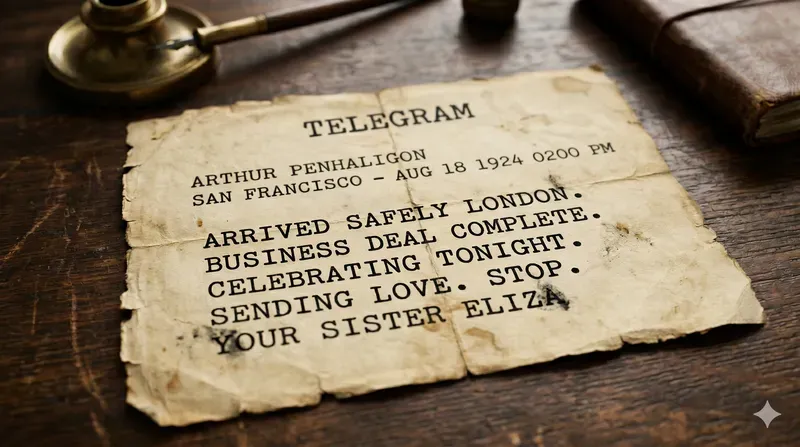 TELEGRAM
ARTHUR PENHALIGON
SAN FRANCISCO – AUG 18 1924 0200 PM
ARRIVED SAFELY LONDON.
BUSINESS DEAL COMPLETE.
CELEBRATING TONIGHT.
SENDING LOVE. STOP.
YOUR SISTER ELIZA.